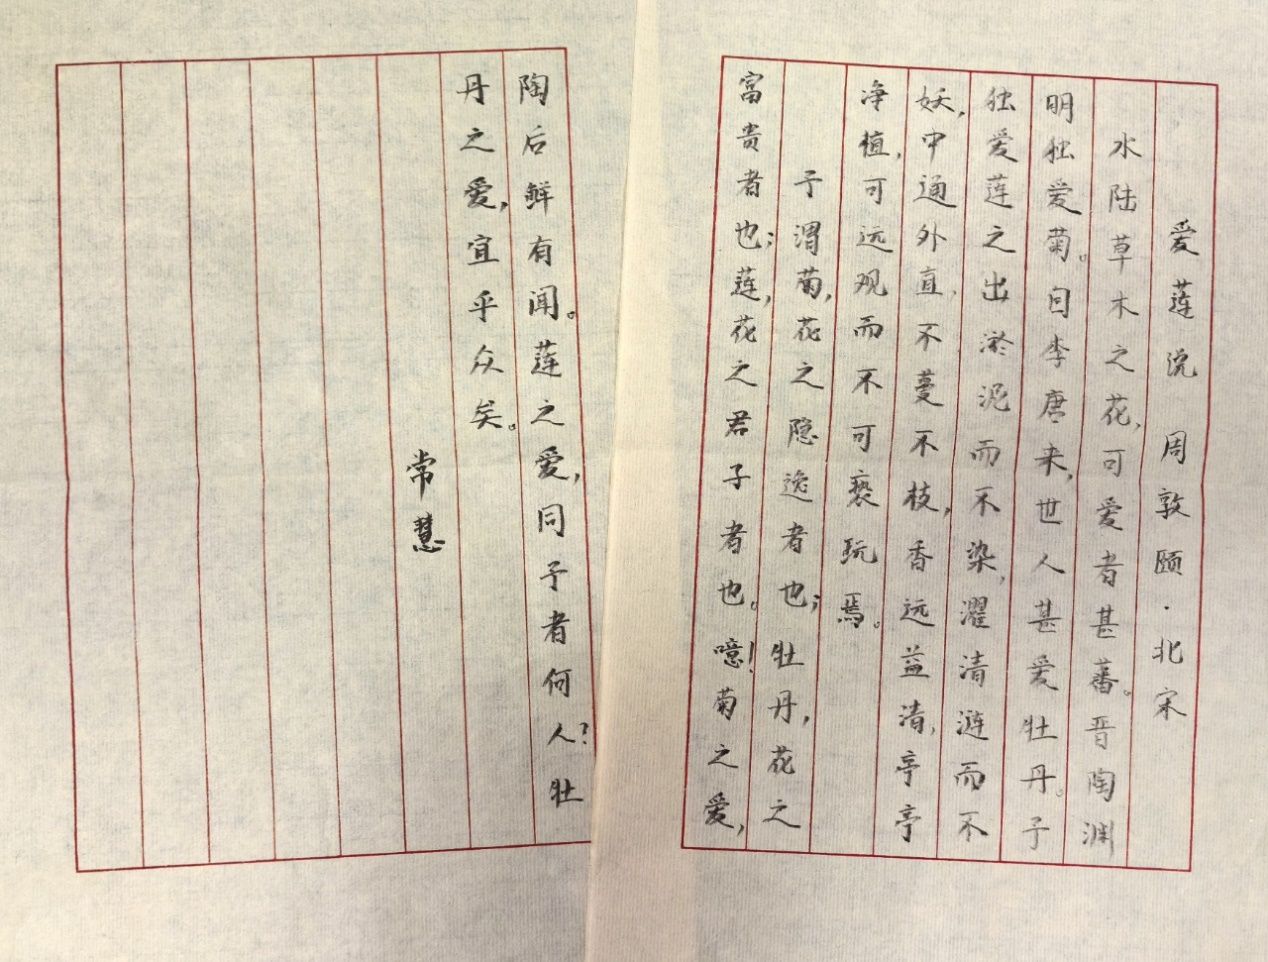 爱莲说 周敦颐·北宋
水陆草木之花，可爱者甚蕃。晋陶渊
明独爱菊。自李唐来，世人甚爱牡丹。予
独爱莲之出淤泥而不染，濯清涟而不
妖，中通外直，不蔓不枝，香远益清，亭亭
净植，可远观而不可亵玩焉。
予谓菊，花之隐逸者也；牡丹，花之
富贵者也；莲，花之君子者也。噫！菊之爱，
陶后鲜有闻。莲之爱，同予者何人？牡
丹之爱，宜乎众矣。
常慧